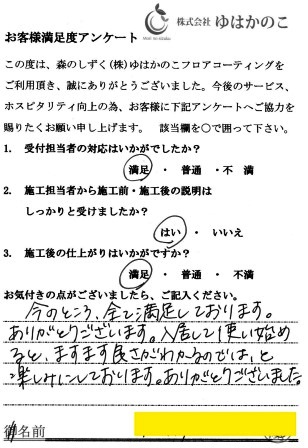 株式会社 ゆはかのこ
お客様満足度アンケート
この度は、森のしずく(株)ゆはかのこフロアコーティングを
ご利用頂き、誠にありがとうございました。今後のサービス、
ホスピタリティ向上の為、お客様に下記アンケートへご協力を
賜りたくお願い申し上げます。 該当欄を○で囲って下さい。
1. 受付担当者の対応はいかがでしたか?
満足 ・ 普通 ・ 不 満
2. 施工担当者から施工前・施工後の説明は
しっかりと受けましたか?
はい ・ いいえ
3. 施工後の仕上がりはいかがですか?
満足 ・ 普通 ・ 不満
お気付きの点がございましたら、ご記入ください。
今のところ、全て満足しております。
ありがとうございます。入居して使い始め
ると、ますます良さがわかるのでは、と
楽しみにしております。ありがとうございました。
御名前